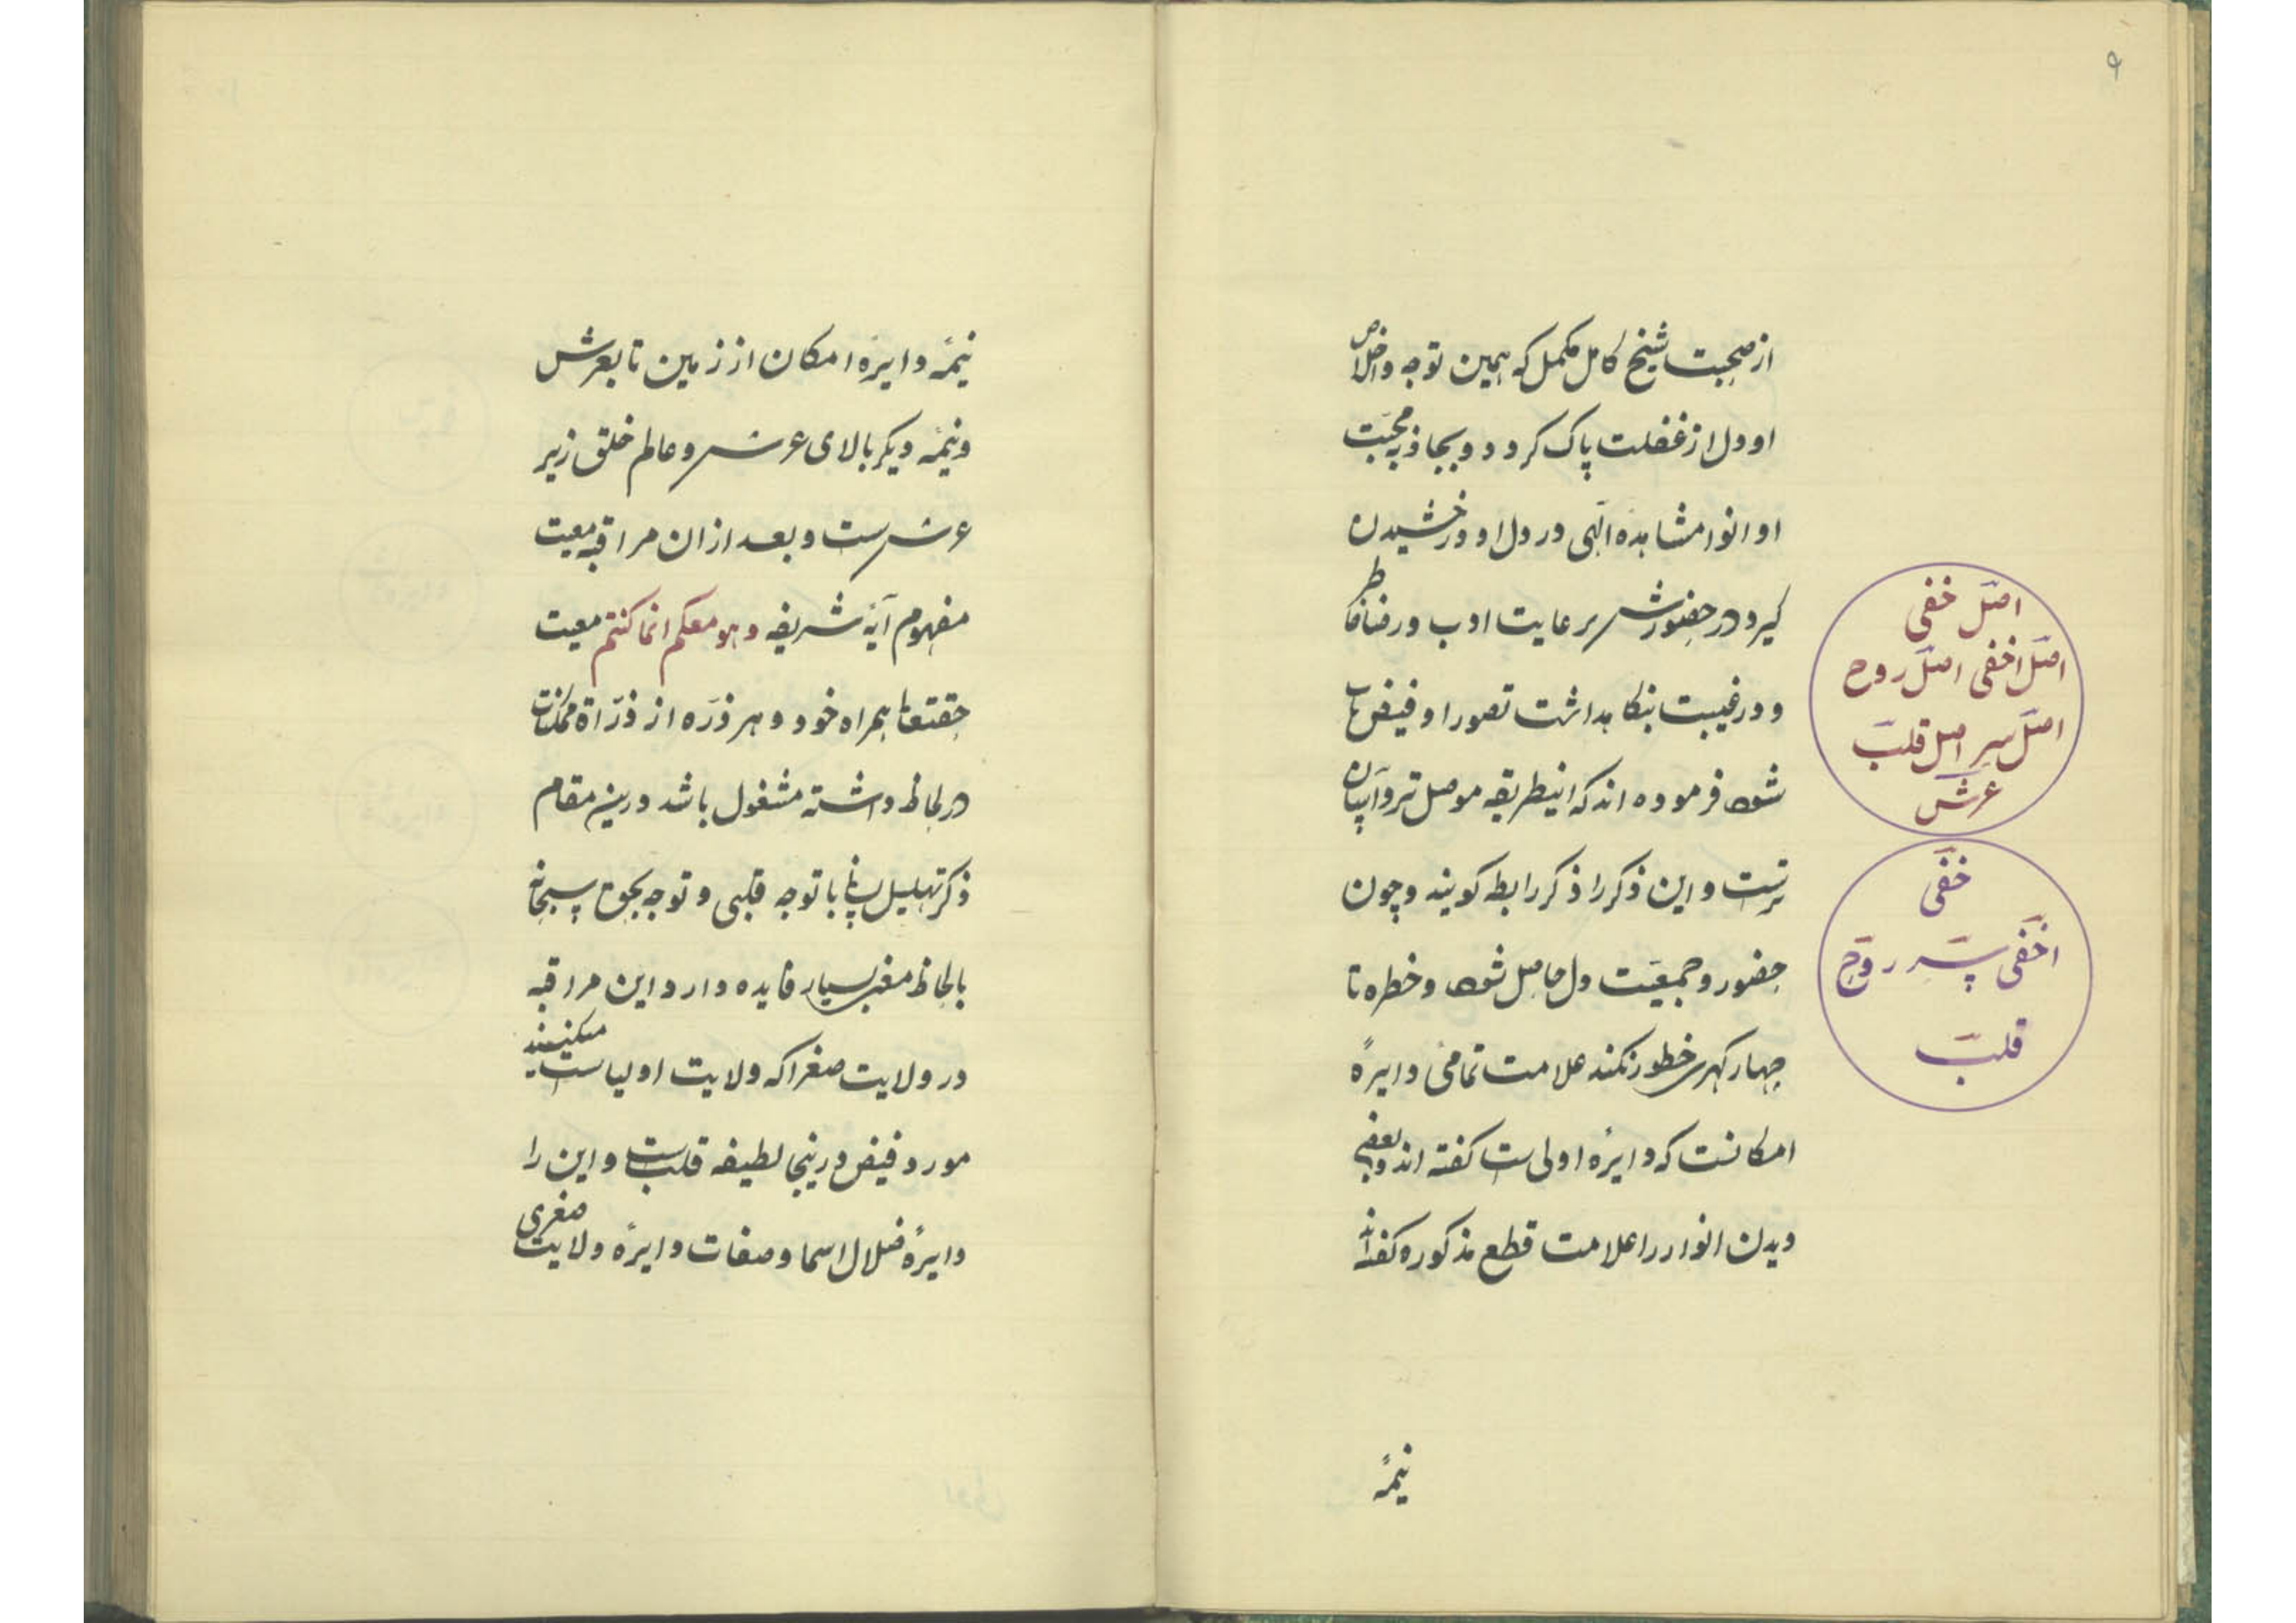 ۹
از صحبت شیخ کامل مکمل که بهمین توجه و اخلاص
او دل از غفلت پاک کردد و بجاذبه محبت
او انوار مشاهدهٔ الهی در دل او درخشیدن
کیرد در حضورش برعایت ادب و رضا خاطر
و در غیبت بنکاهداشت تصور او فیض یاب
شود فرموده اند که اینطریقه موصل تر و آسان
ترست و این ذکر را ذکر رابطه کویند و چون
حضور و جمعیت دل حاصل شود و خطره تا
چهار کهری خطور نکند علامت تمامی دایرهٔ
امکانست که دایرهٔ اولی ست کفته اند و بعضی
دیدن انوار را علامت قطع مذکوره کفته اند
نیمهٔ
اصل خفی
اصل اخفی اصل روح
اصل سر اصل قلب
عرش
خفی
اخفی سر روح
قلب
نیمهٔ دایرهٔ امکان از زمین تا بعرش
و نیمهٔ دیکر بالای عرش و عالم خلق زیر
عرش ست و بعد ازان مراقبه معیت
مفهوم آیهٔ شریفه وهو معکم انما کنتم معیت
حقتعا همراه خود و هر ذرّه از ذرّاة ممکنات
در لحاظ داشته مشغول باشد درین مقام
ذکر تهلیل لسانی با توجه قلبی و توجه بحق سبحانه
بالحاظ معنی بسیار فایده دارد این مراقبه
در ولایت صغرا که ولایت اولیاست میکنند
مورد فیض درینجا لطیفه قلب ست و این را
دایرهٔ ضلال اسما و صفات و دایرهٔ ولایت صغری